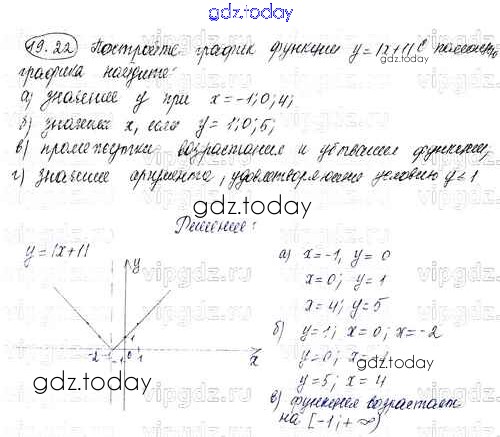 gdz.today
19.22 Постройте график функции y=|x+1| С помощью
графика найдите:
а) значение y при x=-1; 0; 4;
б) значения x, если y=1; 0; 5;
в) промежутки возрастания и убывания функции;
г) значение аргумента, удовлетворяющие условию y<1
gdz.today
Решение:
y=|x+1|
y
-2 -1 0 1
1
x
а) x=-1, y=0
x=0; y=1
x=4; y=5
б) y=1; x=0; x=-2
y=0; x=-1
y=5; x=4
в) функция возрастает
на [-1; +∞)
gdz.today
gdz.today
vipgdz.ru